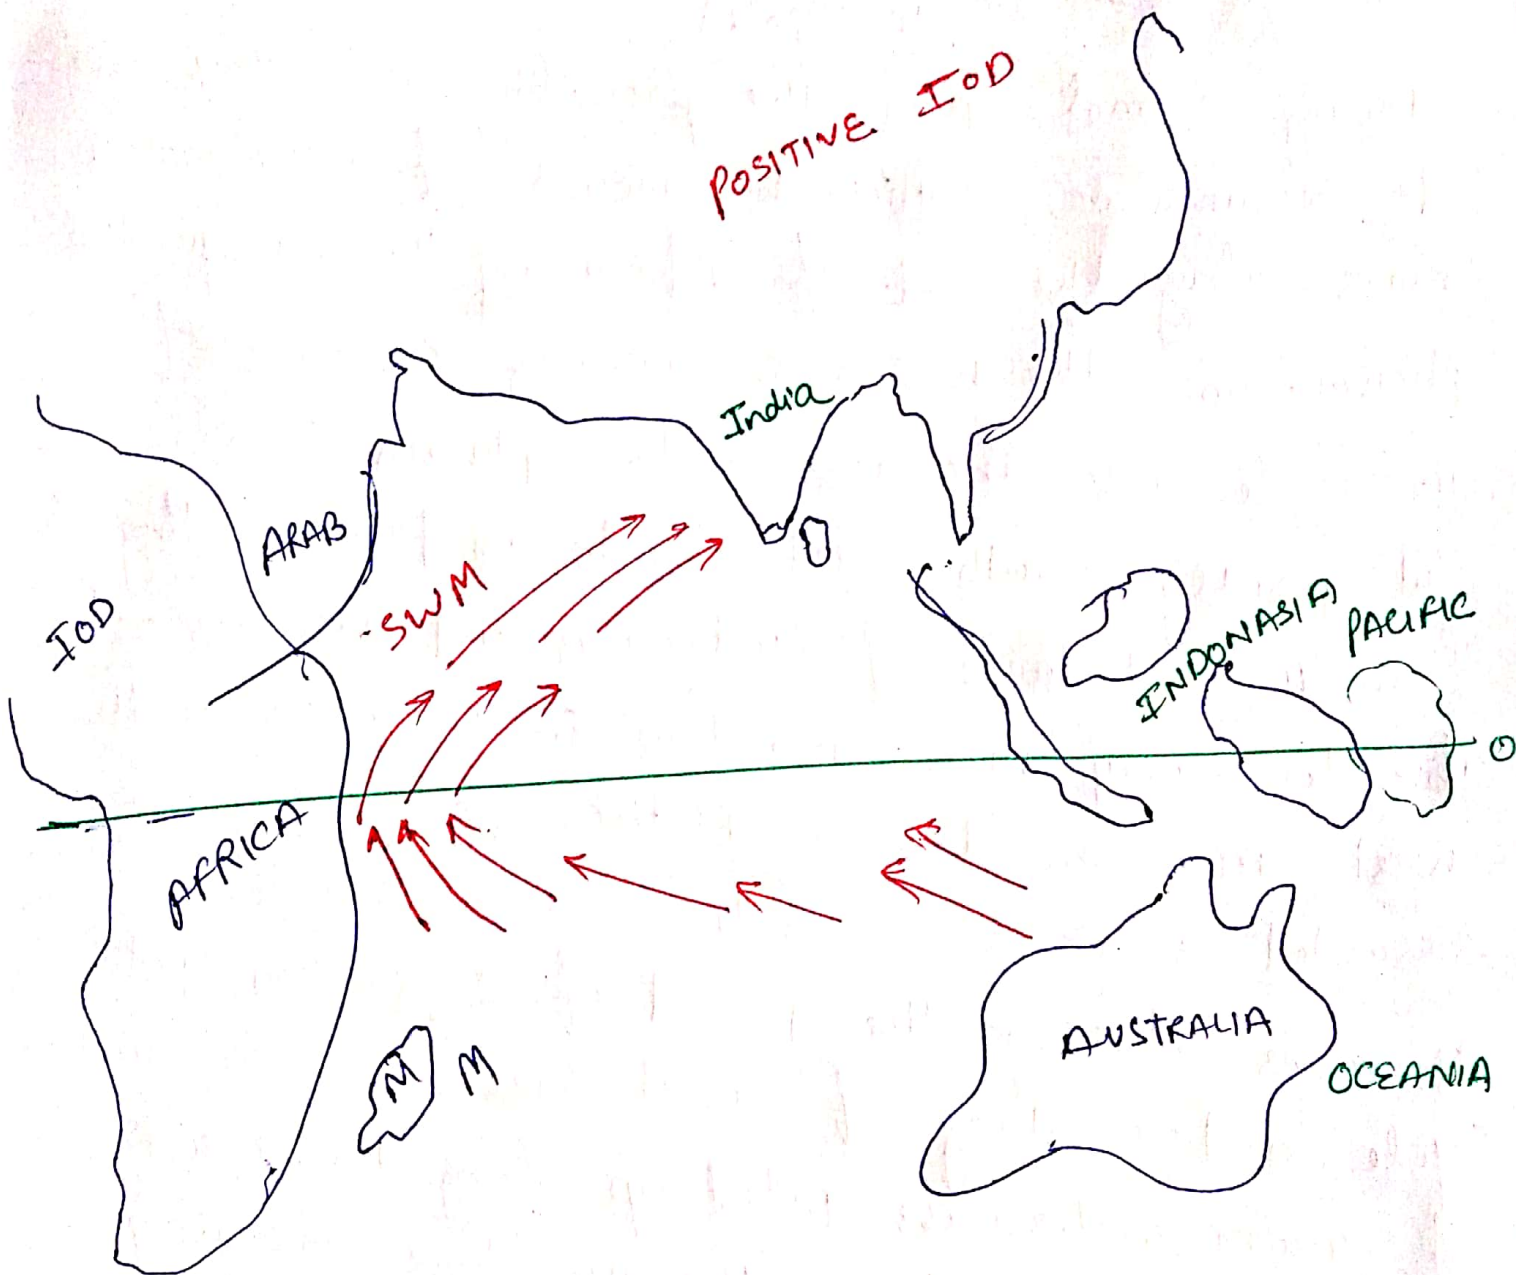 POSITIVE IOD
India
ARAB
SWM
IOD
INDONASIA
PACIFIC
0
AFRICA
M
M
AUSTRALIA
OCEANIA